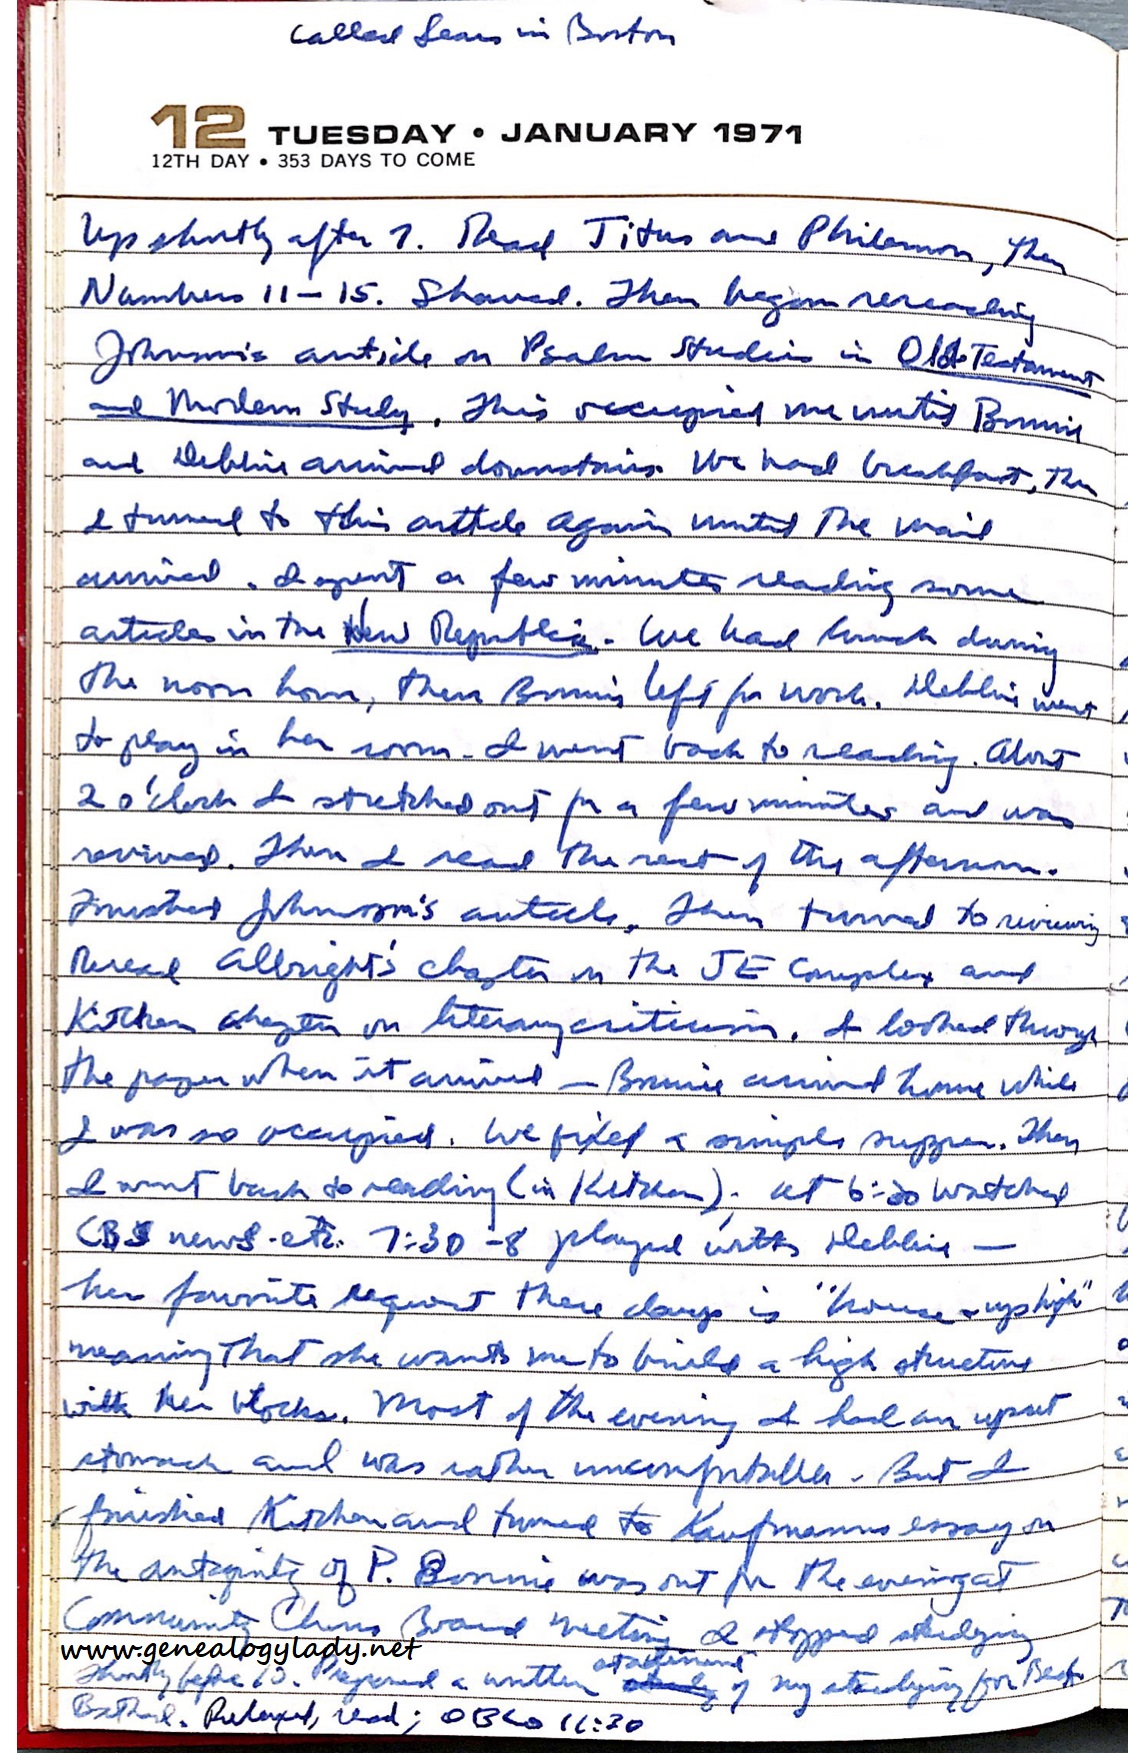 Called Sears in Boston
12 TUESDAY • JANUARY 1971
12TH DAY • 353 DAYS TO COME
Up shortly after 7. Read Titus and Philemon, then
Numbers 11-15. Shaved. Then began rereading
Johnson's article on Psalm Studies in Old Testament
and Modern Study. This occupied me until Bonnie
and Debbie arrived downstairs. We had breakfast, then
I turned to this article again until the mail
arrived. I spent a few minutes reading some
articles in the New Republic. We had lunch during
the noon hour, then Bonnie left for work. Debbie went
to play in her room. I went back to reading. About
2 o'clock I stretched out for a few minutes and was
revived. Then I read the rest of the afternoon.
Finished Johnson's article. Then turned to reviewing
Reread Albright's chapter on the JE Complex and
Kitchen chapter on literary criticism. I looked through
the paper when it arrived — Bonnie arrived home while
I was so occupied. We fixed a simple supper. Then
I went back to reading (in Kitchen). At 6:30 watched
CBS news. etc. 7:30-8 played with Debbie —
her favorite request these days is "house - up high"
meaning that she wants me to build a high structure
with her blocks. Most of the evening I had an upset
stomach and was rather uncomfortable. But I
finished Kitchen and turned to Kaufmanns essay on
the antiquity of P. Bonnie was out for the evening at
Community Chorus Board meeting. I stopped studying
www.genealogylady.net
shortly before 10. Prepared a written statement of my studying for
Bethel. Relaxed, read; 11:30